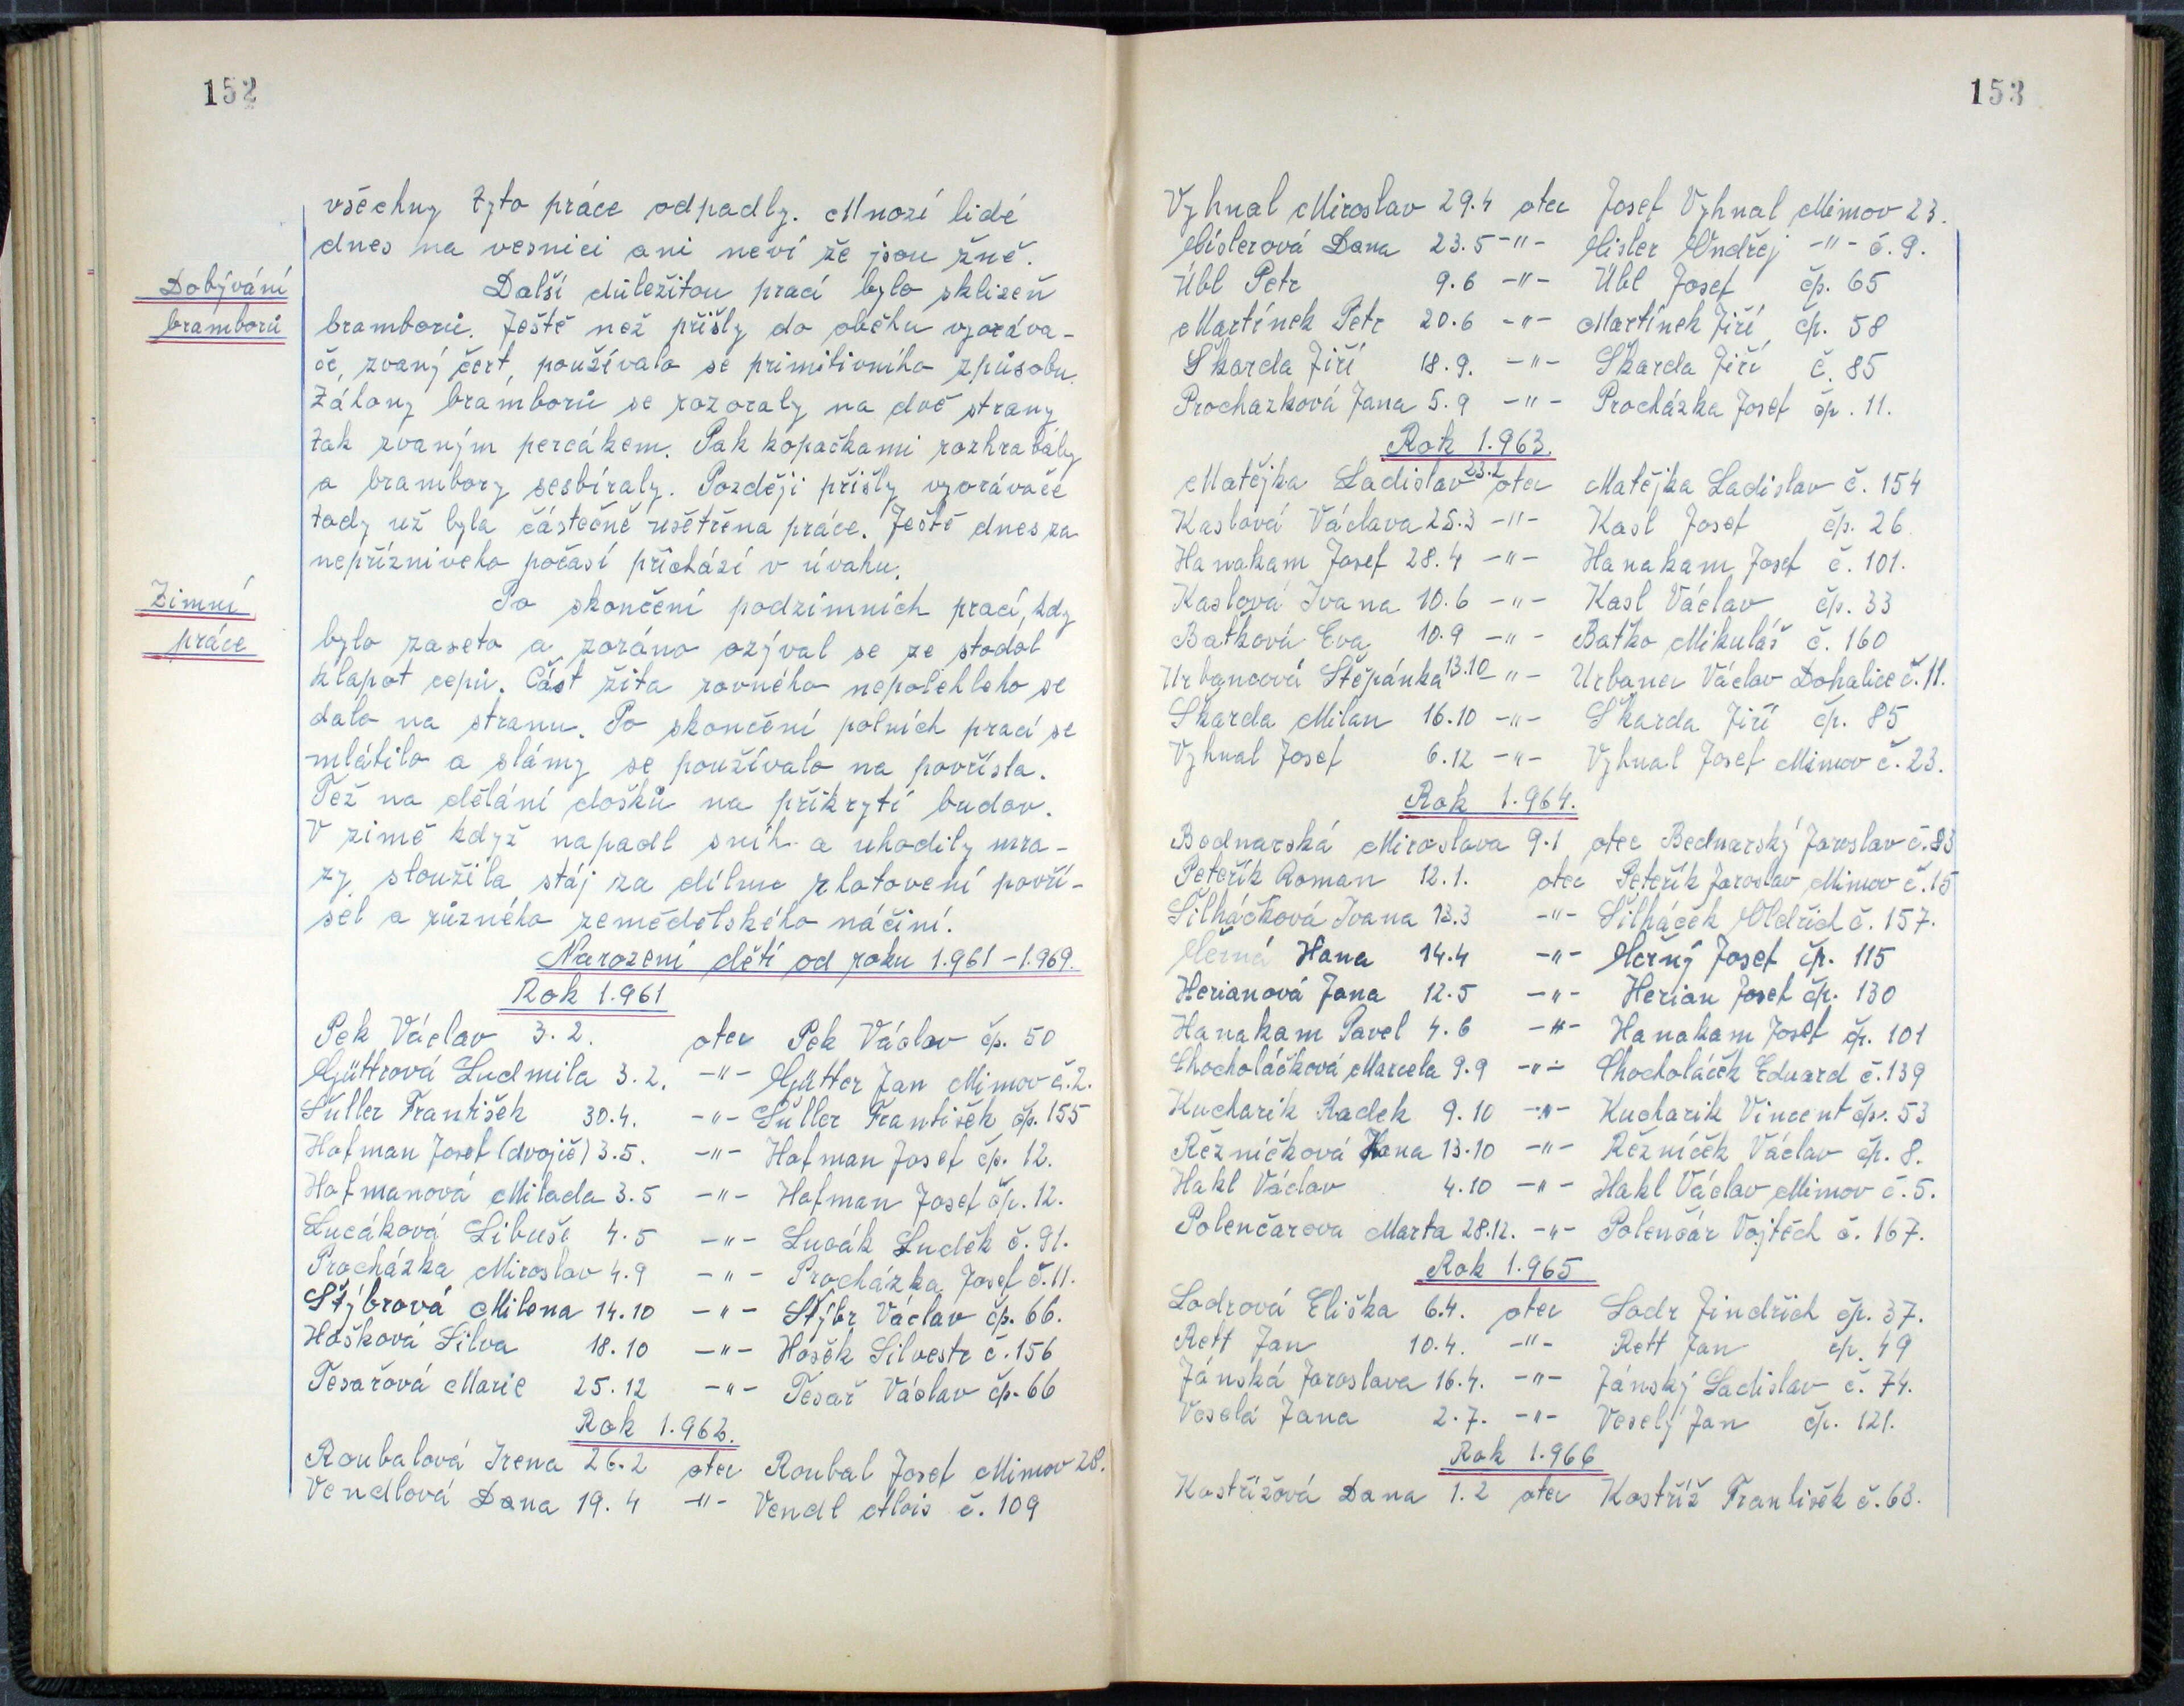 152
všechny tyto práce odpadly. Mnozí lidé
dnes na vesnici ani neví že jsou žně.
Dobývání
bramborů
Další důležitou prací bylo sklizeň
bramborů. Ještě než přišly do oběhu vyoráva-
če, zvaný čert, používalo se primitivního způsobu.
Záhony bramborů se rozoraly na dvě strany
tak zvaným percákem. Pak kopačkami rozhrabaly
a brambory sesbíraly. Později přišly vyorávače
tady už byla částečně ušetřena práce. Ještě dnes za
nepřízniveho počasí přichází v úvahu.
Zimní
práce
Po skončení podzimních prací, kdy
bylo zaseto a zoráno ozýval se ze stodol
klapot cepů. Část žita rovného nepolehleho se
dalo na stranu. Po skončení polních prací se
mlátilo a slámy se používalo na povřísla.
Též na dělání došků na přikrytí budov.
V zimě když napadl sníh a uhodily mra-
zy sloužila stáj za dílnu zhotovení povří-
sel a různého zemědělského náčiní.
Narození dětí od roku 1.961 - 1.969.
Rok 1.961
Pek Václav 3.2. otec Pek Václav čp. 50
Güttrová Ludmila 3.2. -"- Gütter Jan Mimov č.2.
Šuller František 30.4. -"- Šuller František čp. 155
Hofman Josef (dvojič) 3.5. -"- Hofman Josef čp. 12.
Hofmanová Milada 3.5 -"- Hofman Josef čp. 12.
Lucáková Libuše 4.5 -"- Lucák Luděk č. 91.
Procházka Miroslav 4.9 -"- Procházka Josef č. 11.
Štýbrová Milena 14.10 -"- Štýbr Václav čp. 66.
Hošková Silva 18.10 -"- Hošek Silvestr č. 156
Tesařová Marie 25.12 -"- Tesař Václav čp. 66
Rok 1.962.
Roubalová Irena 26.2 otec Roubal Josef Mimov 28.
Vendlová Dana 19.4 -"- Vendl Alois č. 109
153
Vyhnal Miroslav 29.4 otec Josef Vyhnal Mimov 23.
Cislerová Dana 23.5 -"- Cisler Ondřej -"- č. 9.
Übl Petr 9.6 -"- Übl Josef čp. 65
Martínek Petr 20.6 -"- Martínek Jiří čp. 58
Škarda Jiří 18.9. -"- Škarda Jiří č. 85
Prochazková Jana 5.9 -"- Procházka Josef čp. 11.
Rok 1.963.
Matějka Ladislav 23.2 otec Matějka Ladislav č. 154
Kaslová Václava 25.3 -"- Kasl Josef čp. 26
Hanakam Josef 28.4 -"- Hanakam Josef č. 101.
Kaslová Ivana 10.6 -"- Kasl Václav čp. 33
Baťková Eva 10.9 -"- Baťko Mikuláš č. 160
Urbancová Štěpánka 13.10 -"- Urbanec Václav Dohalice č. 11.
Škarda Milan 16.10 -"- Škarda Jiří čp. 85
Vyhnal Josef 6.12 -"- Vyhnal Josef Mimov č. 23.
Rok 1.964.
Bednarská Miroslava 9.1 otec Bednarský Jaroslav č. 83
Peteřík Roman 12.1. otec Peteřík Jaroslav Mimov č. 15
Šilháčková Ivana 13.3 -"- Šilháček Oldřich č. 157.
Černá Hana 14.4 -"- Černý Josef čp. 115
Herianová Jana 12.5 -"- Herian Josef čp. 130
Hanakam Pavel 4.6 -"- Hanakam Josef čp. 101
Chocholáčková Marcela 9.9 -"- Chocholáček Eduard č. 139
Kucharik Radek 9.10 -"- Kucharik Vincent čp. 53
Řezníčková Hana 13.10 -"- Řezníček Václav čp. 8.
Hakl Václav 4.10 -"- Hakl Václav Mimov č. 5.
Polenčarova Marta 28.12. -"- Polenčár Vojtěch č. 167.
Rok 1.965
Lodrová Eliška 6.4. otec Lodr Jindřich čp. 37.
Rett Jan 10.4. -"- Rett Jan čp. 49
Jánská Jaroslava 16.4. -"- Jánský Ladislav č. 74.
Veselá Jana 2.7. -"- Veselý Jan čp. 121.
Rok 1.966
Kostřížová Dana 1.2 otec Kostříž František č. 63.